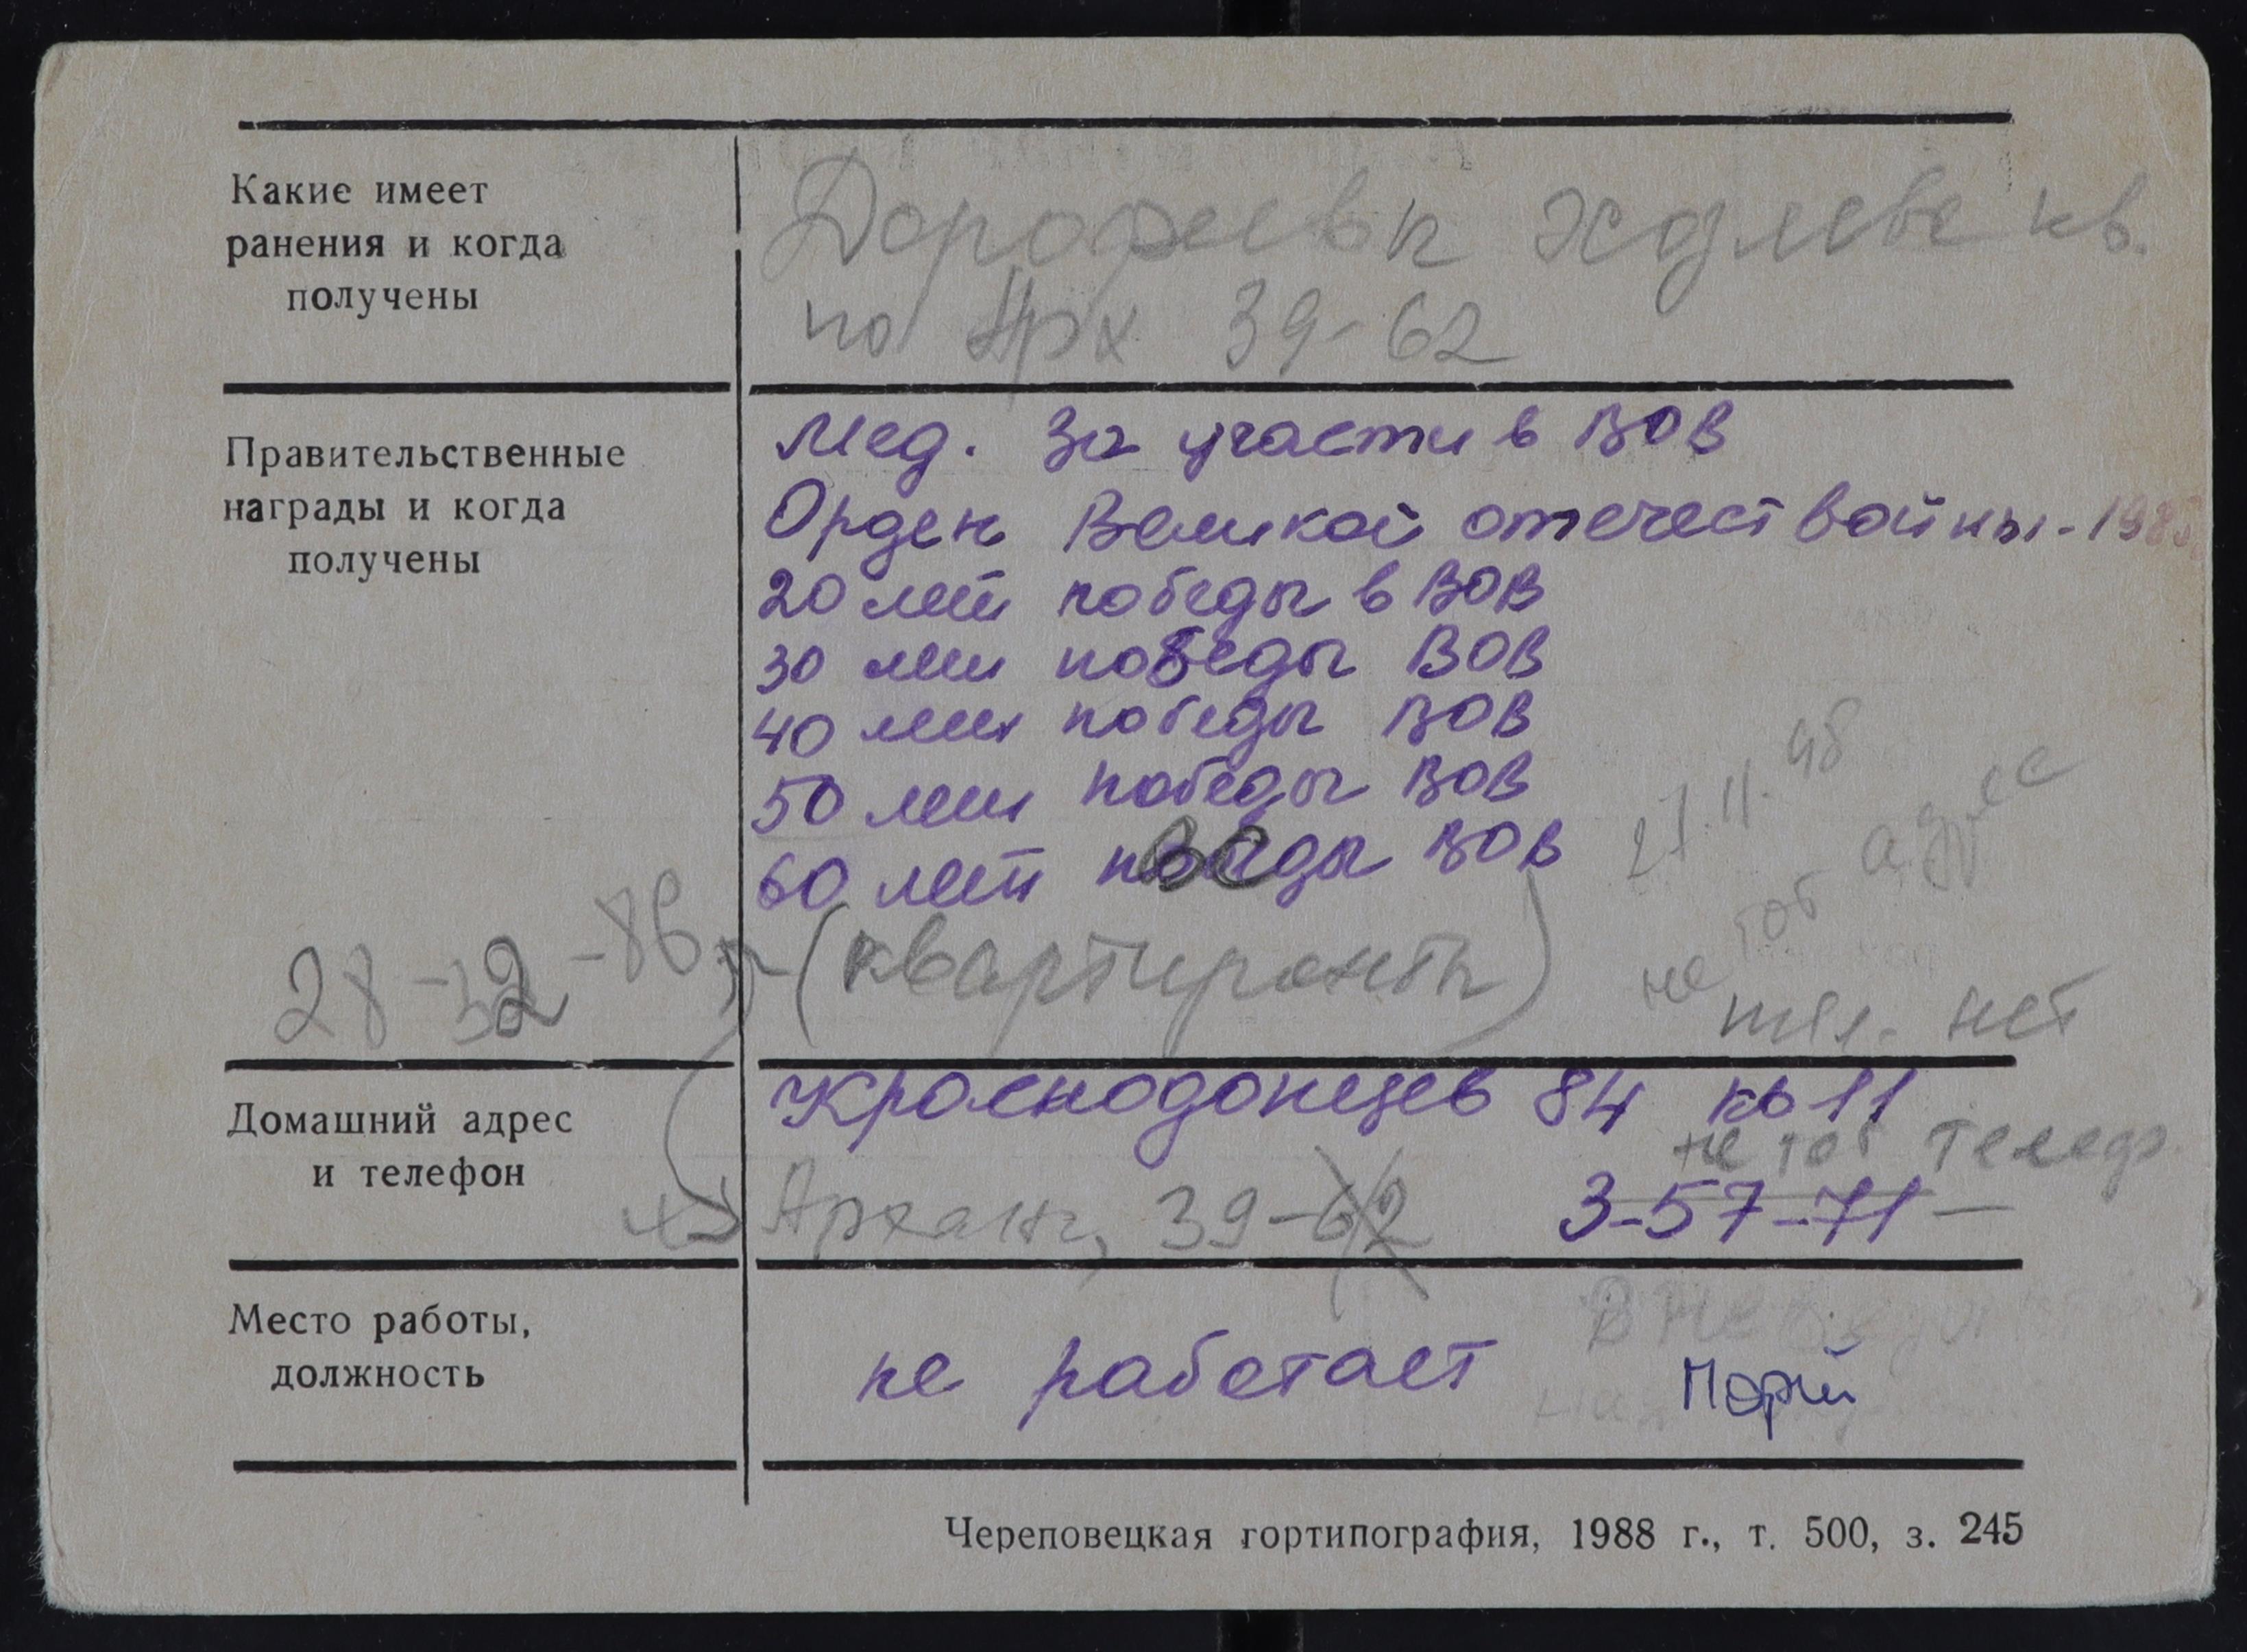 Какие имеет
ранения и когда
получены
кв.
по Арх 39-62
Правительственные
награды и когда
получены
Мед. За участи в ВОВ
Орден Великой отечест войны - 1985
20 лет победы в ВОВ
30 лет победы ВОВ
40 лет победы ВОВ
50 лет победы ВОВ
60 лет победы ВОВ
11.98
не тот адрес
28-32-86 (квартиранты)
тел. нет
Домашний адрес
и телефон
Краснодонцев 84 кв 11
не тот телеф.
Арханг, 39-62 3-57-71
Место работы,
должность
не работает
Череповецкая гортипография, 1988 г., т. 500, з. 245